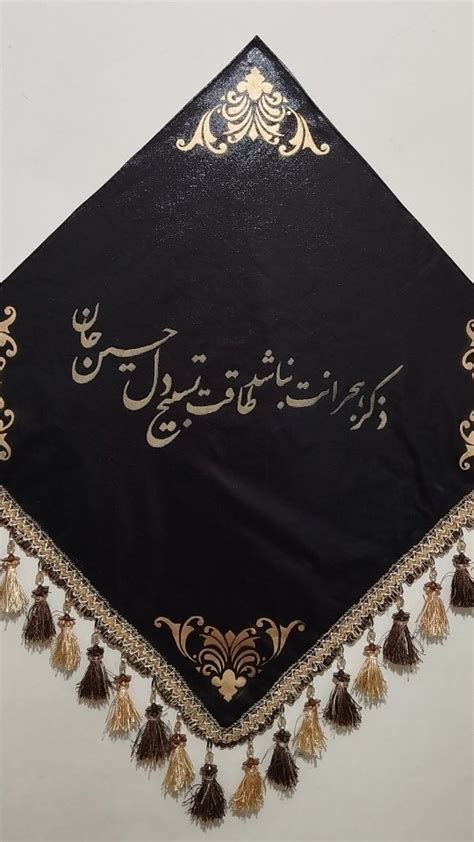 ذکر هجرانت نباشد طاقت تسبیح دل حسین جان